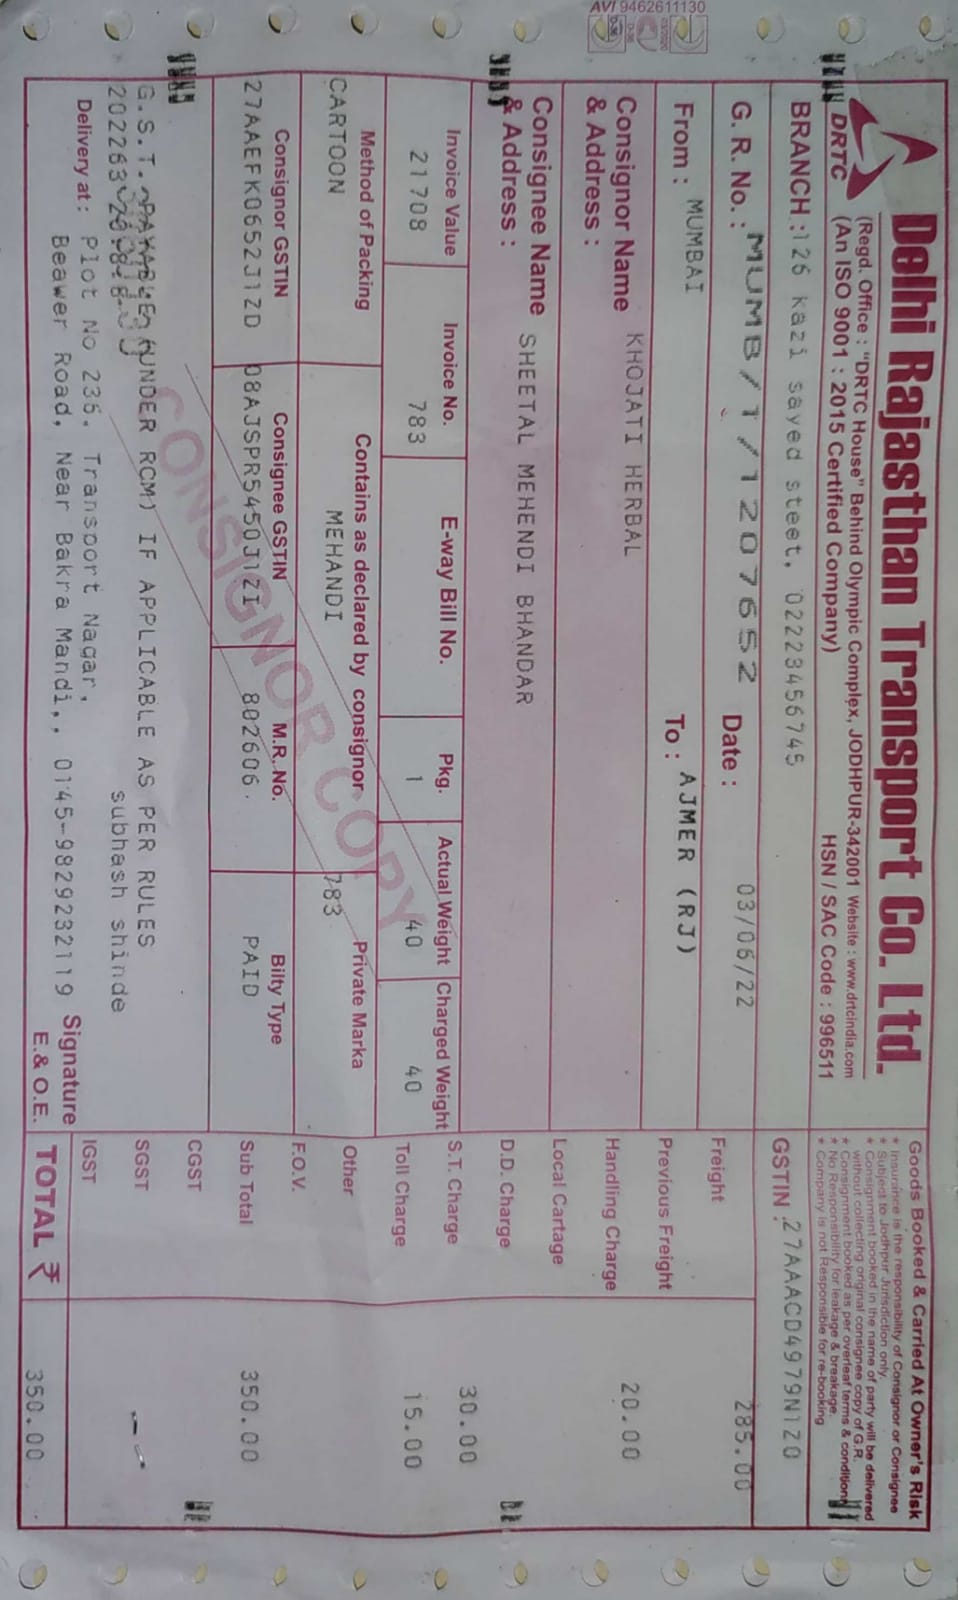 AVI 9462611130
DRTC
Delhi Rajasthan Transport Co. Ltd.
(Regd. Office : "DRTC House" Behind Olympic Complex, JODHPUR-342001 Website : www.drtcindia.com
(An ISO 9001 : 2015 Certified Company) HSN / SAC Code : 996511
Goods Booked & Carried At Owner's Risk
* Insurance is the responsibility of Consignor or Consignee
* Subject to Jodhpur Jurisdiction only.
* Consignment booked in the name of party will be delivered
without collecting original consignee copy of G.R.
* Consignment booked as per overleaf terms & condition
* No Responsibility for leakage & breakage.
* Company is not Responsible for re-booking
BRANCH : 126 kazi sayed steet, 02223456745
GSTIN : 27AAACD4979N1Z0
G. R. No. : MUMB/1/1207652 Date : 03/06/22
From : MUMBAI To : AJMER (RJ)
Consignor Name KHOJATI HERBAL
& Address :
Consignee Name SHEETAL MEHENDI BHANDAR
& Address :
Invoice Value Invoice No. E-way Bill No. Pkg. Actual Weight Charged Weight
21708 783 1 40 40
Method of Packing Contains as declared by consignor Private Marka
CARTOON MEHANDI 783
Consignor GSTIN Consignee GSTIN M.R. No. Bilty Type
27AAEFK0652J1ZD 08AJSPR5450J1ZI 802606. PAID
CONSIGNOR COPY
G.S.T. PAYABLE (UNDER RCM) IF APPLICABLE AS PER RULES
subhash shinde
Delivery at : Plot No 236, Transport Nagar,
Beawer Road, Near Bakra Mandi,, 0145-9829232119
Signature
E. & O.E.
Freight 285.00
Previous Freight
Handling Charge 20.00
Local Cartage
D.D. Charge
S.T. Charge 30.00
Toll Charge 15.00
Other
F.O.V.
Sub Total 350.00
CGST
SGST
IGST
TOTAL ₹ 350.00